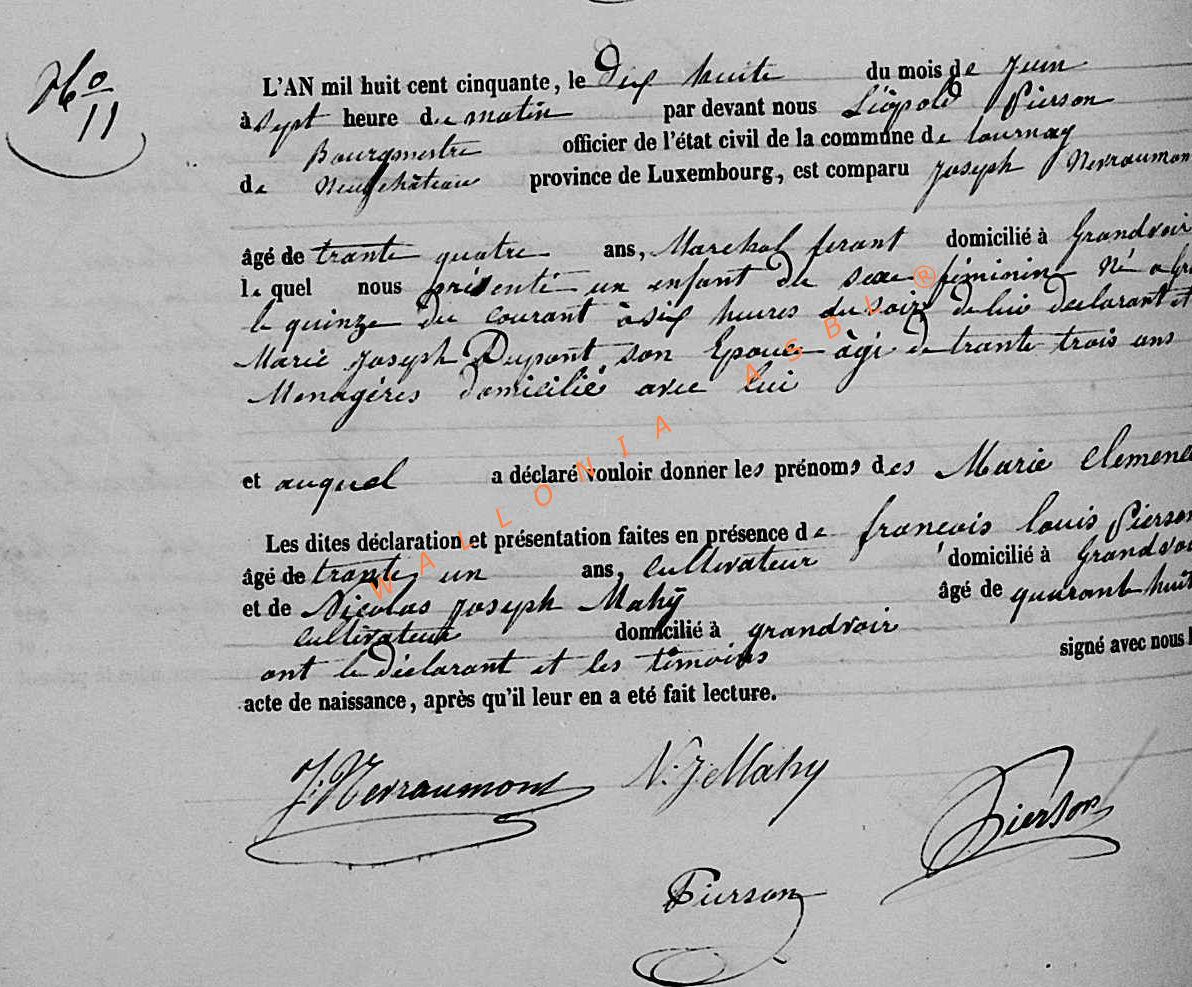 No
11
L'AN mil huit cent cinquante, le Dix huite du mois de Juin
à sept heure du matin par devant nous Léopold Pierson
Bourgmestre officier de l'état civil de la commune de tournay
de Neufchâteau province de Luxembourg, est comparu Joseph Nevraumont
âgé de trante quatre ans, Marchal ferant domicilié à Grandvoir
le quel nous présenté un enfant du sexe féminin Né a Gra
le quinze du courant à six heures du soir, de lui declarant et
Marie Joseph Dupont son Epouce âgé de trante trois ans
Menagéres domicilié avec lui
et auquel a déclaré vouloir donner les prénoms des Marie Clemence
Les dites déclaration et présentation faites en présence de francois louis Pierson
âgé de trante un ans, Cultivateur domicilié à Grandvoi
et de Nicolas Joseph Mahÿ âgé de quarant huit
Cultivateur domicilié à grandvoir signé avec nous l
ont le déclarant et les témoins
acte de naissance, après qu'il leur en a eté fait lecture.
J. Nevraumont N. J. Mahy Pierson
Pierson
WALLONIA ASBL ®